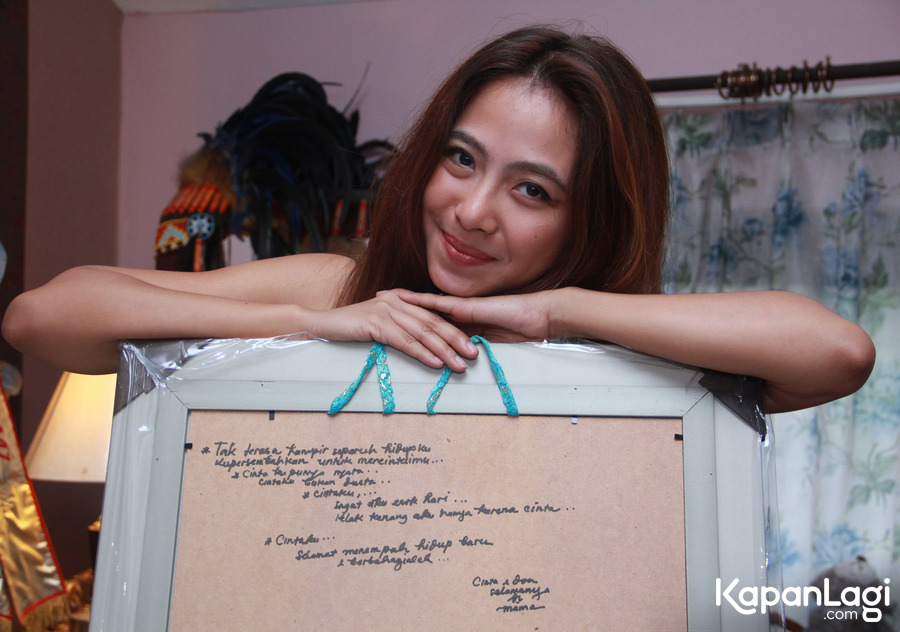 * Tak terasa hampir separuh hidupku
kupersembahkan untuk mencintaimu...
* Cinta ku punya nyata..
cintaku bukan dusta..
* Cintaku,...
Ingat aku esok hari...
kelak kenang aku hanya karena cinta..
* Cintaku...
Selamat menempuh hidup baru
& berbahagialah...
Cinta & Doa
selamanya
mama
KapanLagi
.com